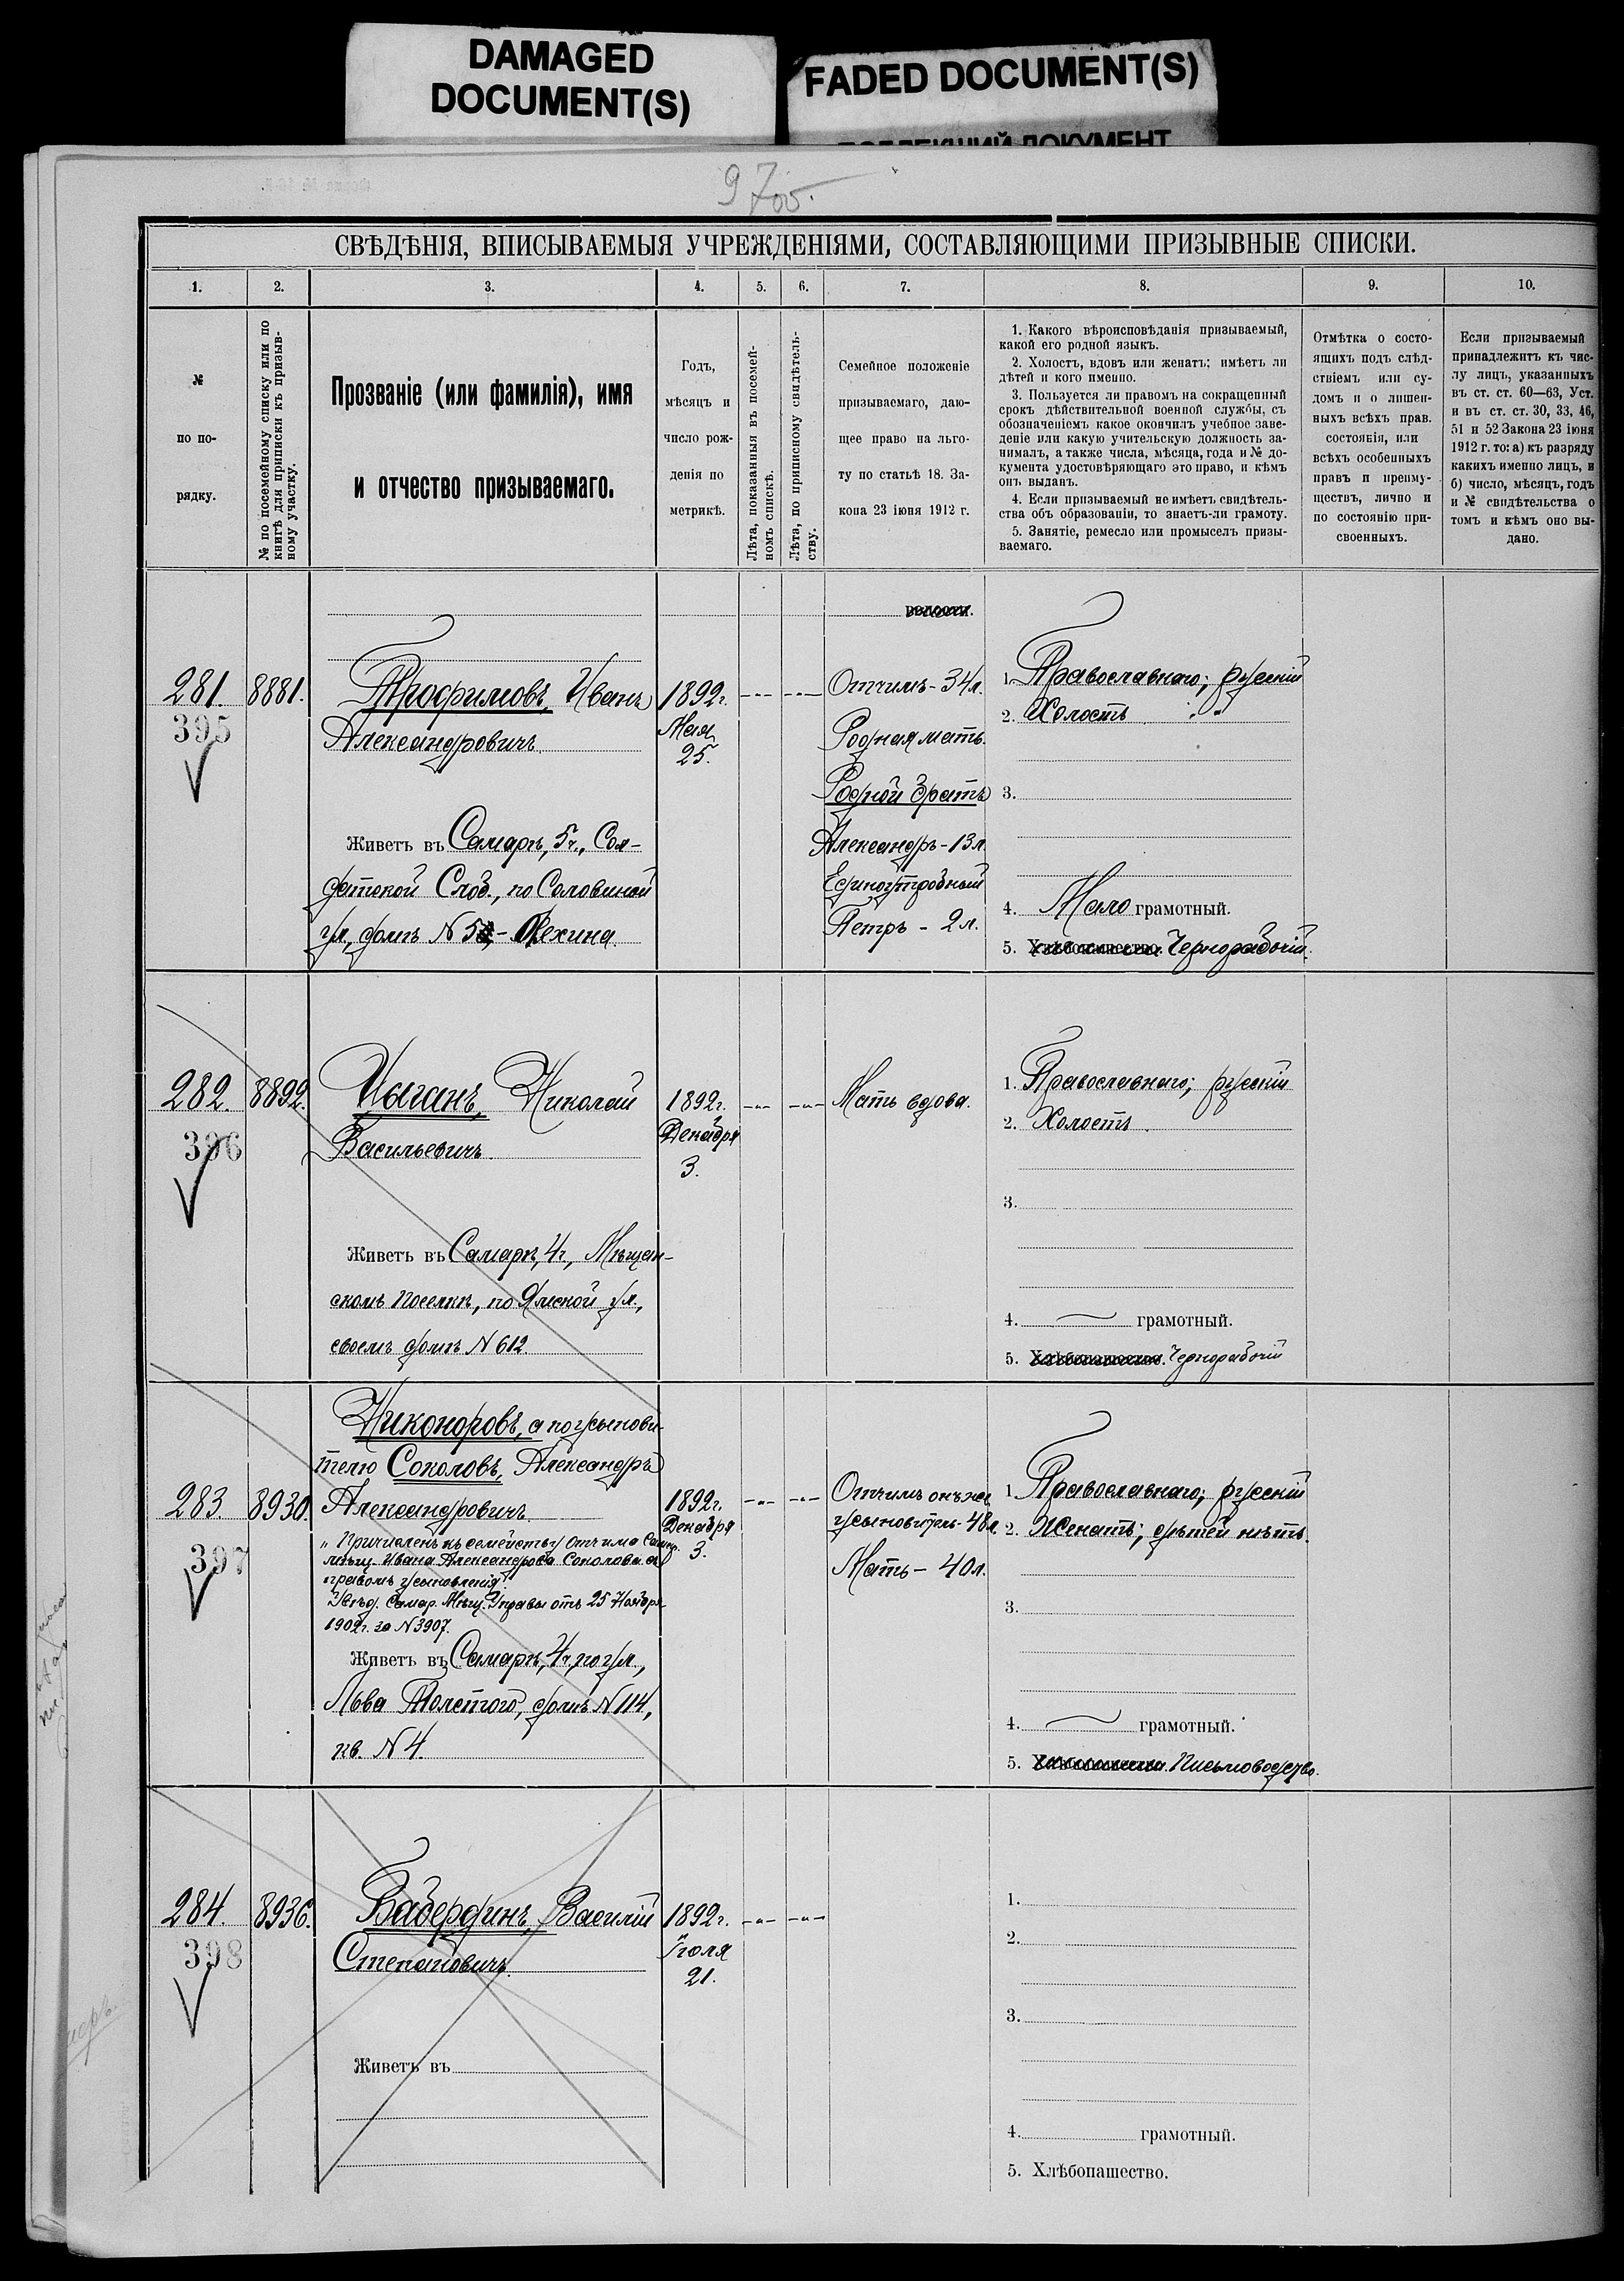 DAMAGED
DOCUMENT(S)
FADED DOCUMENT(S)
97об.
СВѢДѢНІЯ, ВПИСЫВАЕМЫЯ УЧРЕЖДЕНІЯМИ, СОСТАВЛЯЮЩИМИ ПРИЗЫВНЫЕ СПИСКИ.
1. 2. 3. 4. 5. 6. 7. 8. 9. 10.
№
по по-
рядку.
№ по посемейному списку или по
книгѣ для приписки къ призыв-
ному участку.
Прозваніе (или фамилія), имя
и отчество призываемаго.
Годъ,
мѣсяцъ и
число рож-
денія по
метрикѣ.
Лѣта, показанныя въ посемей-
номъ спискѣ.
Лѣта, по приписному свидѣтель-
ству.
Семейное положеніе
призываемаго, даю-
щее право на льго-
ту по статьѣ 18. За-
кона 23 іюня 1912 г.
1. Какого вѣроисповѣданія призываемый,
какой его родной языкъ.
2. Холостъ, вдовъ или женатъ; имѣетъ ли
дѣтей и кого именно.
3. Пользуется ли правомъ на сокращенный
срокъ дѣйствительной военной службы, съ
обозначеніемъ какое окончилъ учебное заве-
деніе или какую учительскую должность за-
нималъ, а также числа, мѣсяца, года и № до-
кумента удостовѣряющаго это право, и кѣмъ
онъ выданъ.
4. Если призываемый не имѣетъ свидѣтель-
ства объ образованіи, то знаетъ-ли грамоту.
5. Занятіе, ремесло или промыселъ призы-
ваемаго.
Отмѣтка о состо-
ящихъ подъ слѣд-
ствіемъ или су-
домъ и о лишен-
ныхъ всѣхъ прав.
состоянія, или
всѣхъ особенныхъ
правъ и преиму-
ществъ, лично и
по состоянію при-
своенныхъ.
Если призываемый
принадлежитъ къ чис-
лу лицъ, указанныхъ
въ ст. ст. 60—63, Уст.
и въ ст. ст. 30, 33, 46,
51 и 52 Закона 23 іюня
1912 г. то: а) къ разряду
какихъ именно лицъ, и
б) число, мѣсяцъ, годъ
и № свидѣтельства о
томъ и кѣмъ оно вы-
дано.
волости.
281. 8881.
395
Трофимовъ, Иванъ
Александровичъ
Живетъ въ Самарѣ, 5ч., Сол-
датской Слоб., по Соловьиной
ул., домъ N 5 -
1892г.
Мая
25.
Отчимъ - 34л.
Родная мать.
Родной братъ
Александръ - 13л.
Единоутробный
Петръ - 2 л.
1. Православнаго; русскій
2. Холостъ
3.
4. Мало грамотный.
5. Хлѣбопашество. Чернорабочій.
282. 8892.
396
Цыганъ, Николай
Васильевичъ
Живетъ въ Самарѣ, 4ч., Мѣщан-
скомъ поселкѣ, по Ямской ул.,
своемъ домѣ N 612.
1892г.
Декабря
3.
Мать вдова.
1. Православнаго; русскій
2. Холостъ.
3.
4. грамотный.
5. Хлѣбопашество. Чернорабочій
283. 8930.
397
Никоноровъ, а по усынови-
телю Соколовъ, Александръ
Александровичъ
„Причисленъ къ семейству отчима Самар.
мѣщ. Ивана Александрова Соколова съ
правомъ усыновленія".
Увѣд. Самар. Мѣщ. Управы отъ 25 Ноября
1902г. за N 3907.
Живетъ въ Самарѣ, 4ч, по ул.,
Льва Толстого, домъ N 114,
кв. N 4.
1892г.
Декабря
3.
Отчимъ онъ же
усыновитель - 48л.
Мать - 40л.
1. Православнаго; русскій
2. Женатъ; дѣтей нѣтъ.
3.
4. грамотный.
5. Хлѣбопашество. Письмоводство.
284. 8936.
398
Бабердинъ, Василій
Степановичъ.
Живетъ въ
1892г.
Іюля
21.
1.
2.
3.
4. грамотный.
5. Хлѣбопашество.